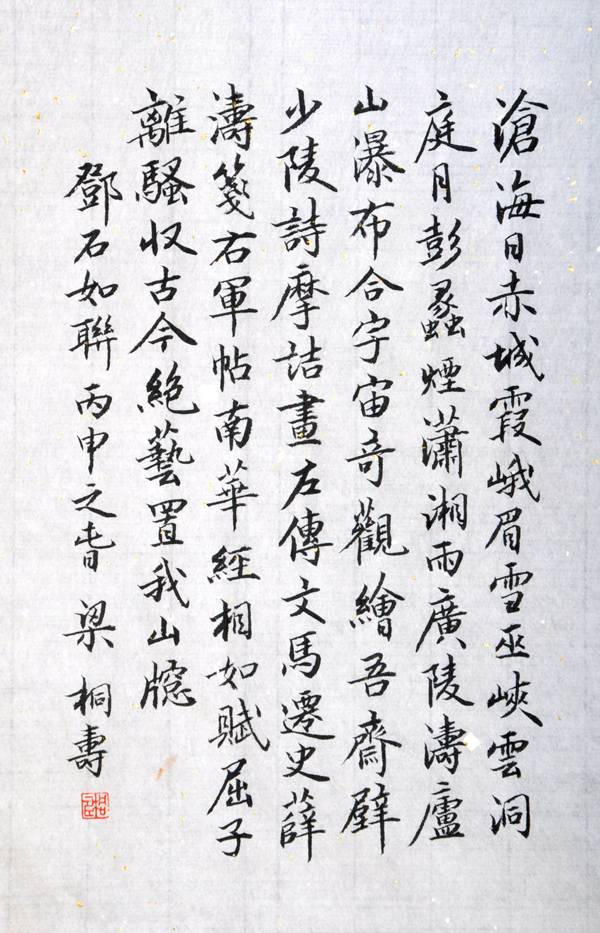 滄海日赤城霞峨眉雪巫峽雲洞
庭月彭蠡煙瀟湘雨廣陵濤廬
山瀑布合宇宙奇觀繪吾齋壁
少陵詩摩詰畫左傳文馬遷史薛
濤箋右軍帖南華經相如賦屈子
離騷收古今絶藝置我山牕
鄧石如聯丙申之春梁桐壽